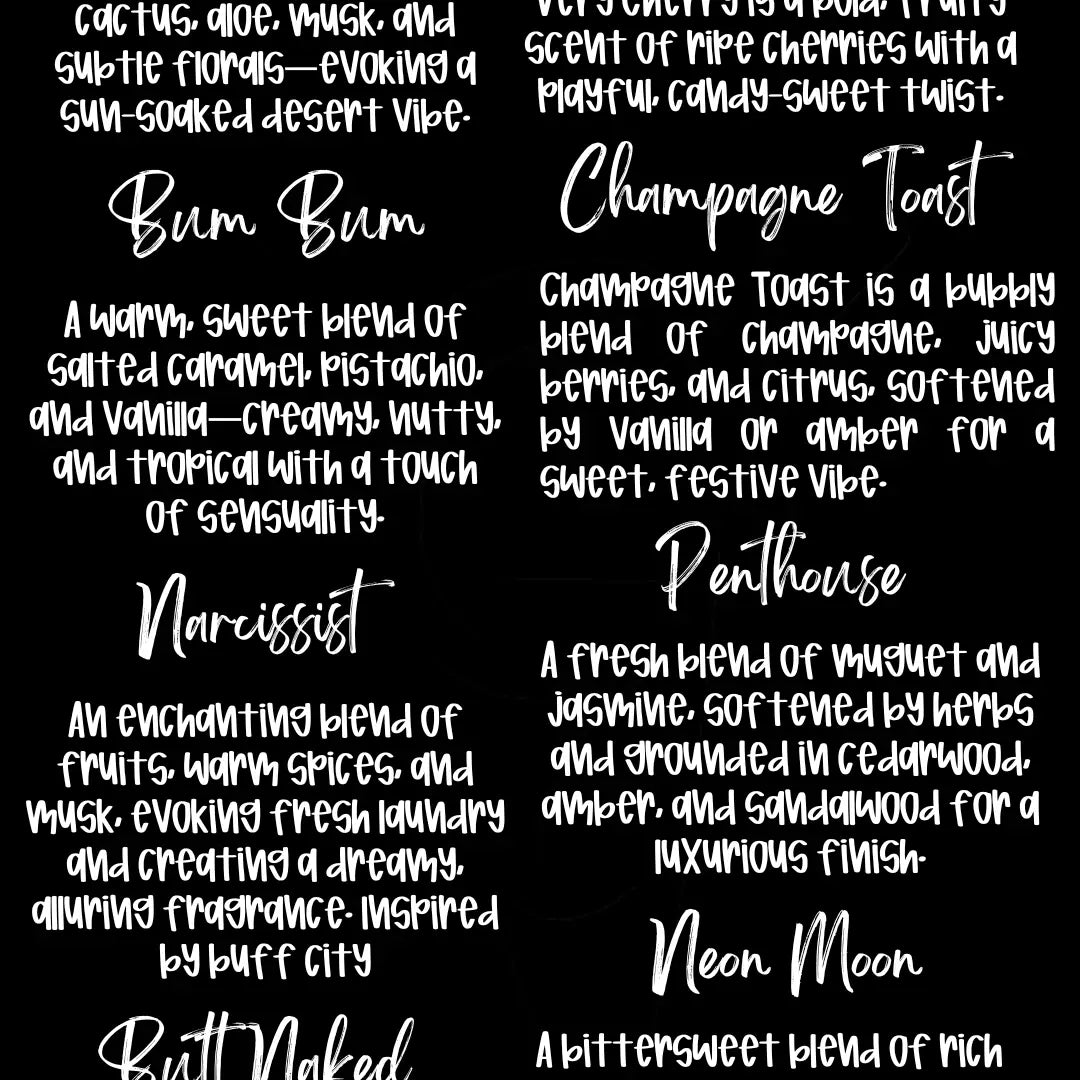 cactus, aloe, musk, and
subtle florals—evoking a
sun-soaked desert vibe.
Bum Bum
A warm, sweet blend of
salted caramel, pistachio,
and vanilla—creamy, nutty,
and tropical with a touch
of sensuality.
Narcissist
An enchanting blend of
fruits, warm spices, and
musk, evoking fresh laundry
and creating a dreamy,
alluring fragrance. Inspired
by buff city
Butt Naked
Very Cherry is a bold, fruity
scent of ripe cherries with a
playful, candy-sweet twist.
Champagne Toast
Champagne Toast is a bubbly
blend of champagne, juicy
berries, and citrus, softened
by vanilla or amber for a
sweet, festive vibe.
Penthouse
A fresh blend of muguet and
jasmine, softened by herbs
and grounded in cedarwood,
amber, and sandalwood for a
luxurious finish.
Neon Moon
A bittersweet blend of rich